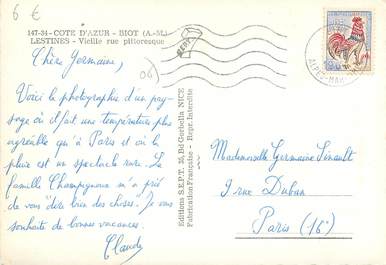 6 €
147-34 - COTE D'AZUR - BIOT (A.-M.)
LESTINES - Vieille rue pittoresque
06)
Chère Germaine,
Voici la photographie d'un pay-
sage où il fait une température plus
agréable qu'à Paris et où la
pluie est un spectacle rare. La
famille Champignoux m'a prié
de vous dire bien des choses. Je vous
souhaite de bonnes vacances.
Claude
Editions S.E.P.T. 35, Bd Gorbella NICE
Fabrication Française - Repr. Interdite
ALPES-MAR
Mademoiselle Germaine Sénault
9 rue Duban
Paris (16e)